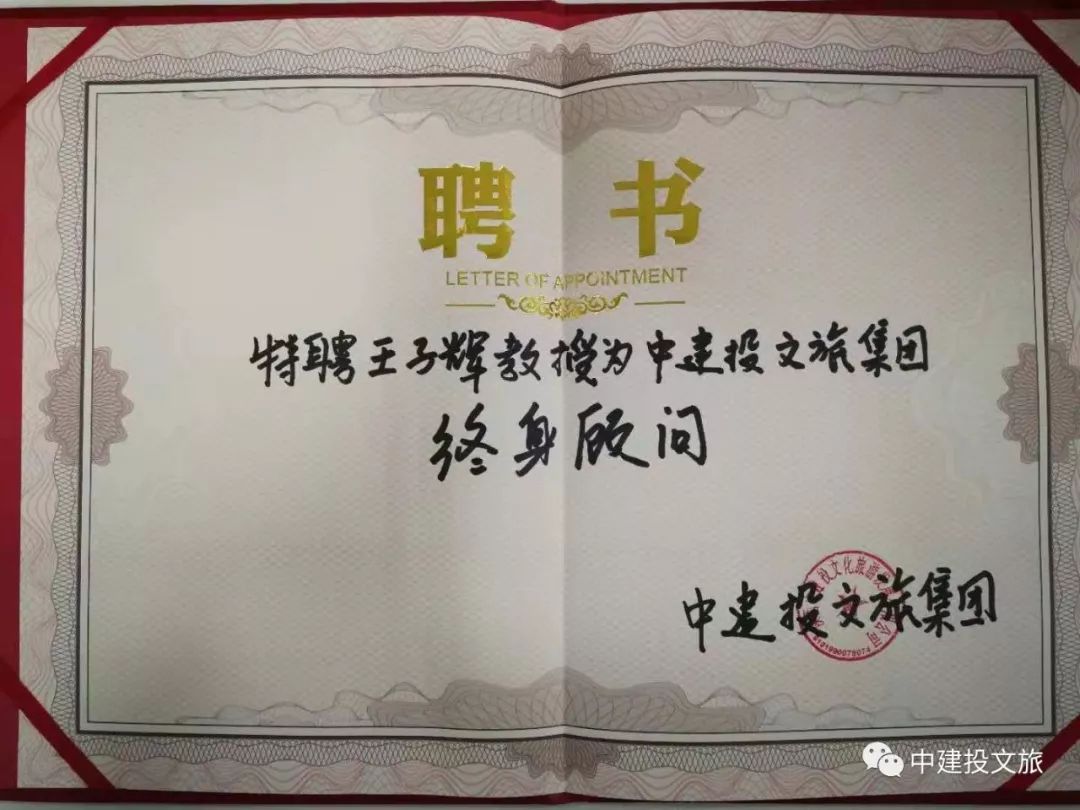 聘 书
LETTER OF APPOINTMENT
特聘王子辉教授为中建投文旅集团
终身顾问
中建投文旅集团
中建投文旅